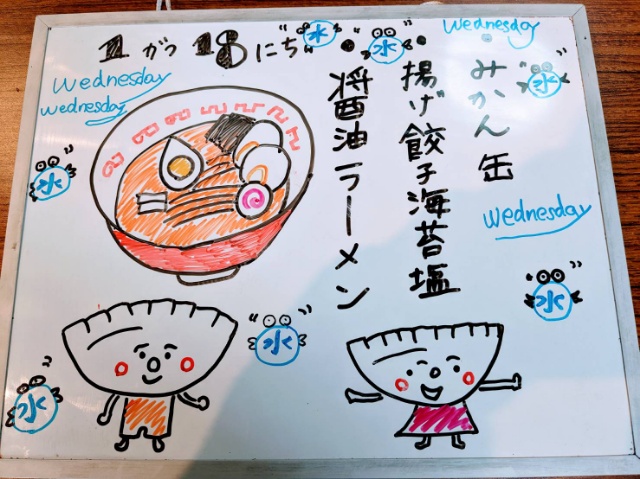 11がつ18にち
水
水
wednesday
・みかん缶
水
・揚げ餃子海苔塩
・醤油ラーメン
wednesday
wednesday
水
wednesday
水
水
水